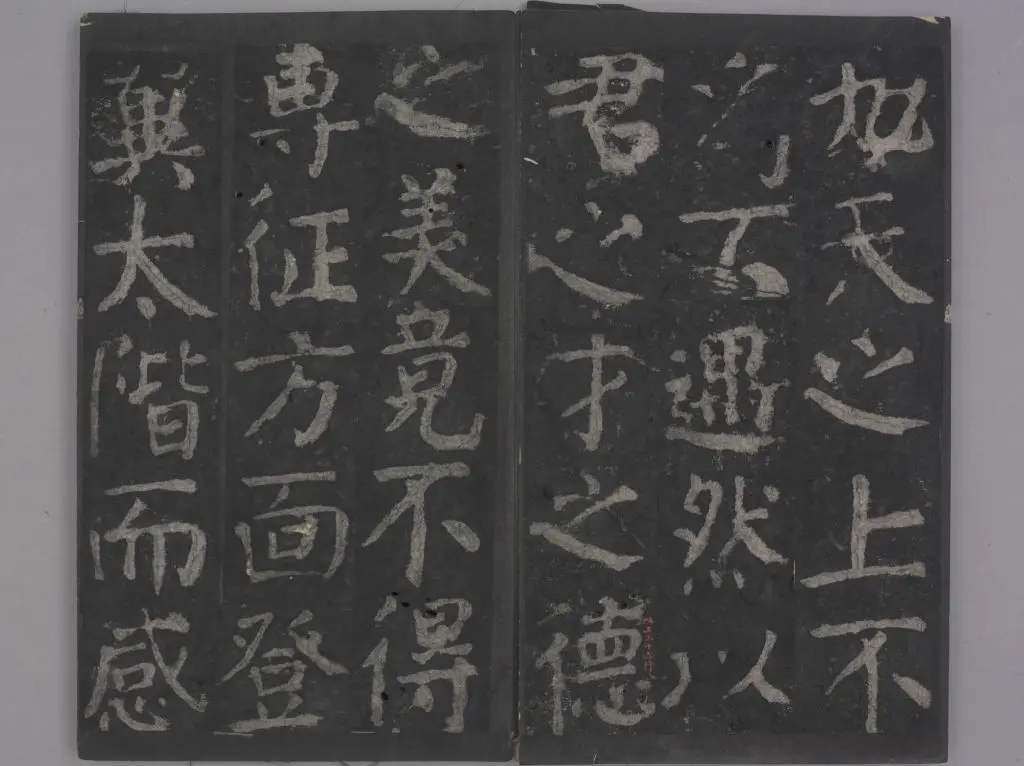 天之上不
遇然以
君之才之德
之美竟不得
專征方面登
翼太階而感